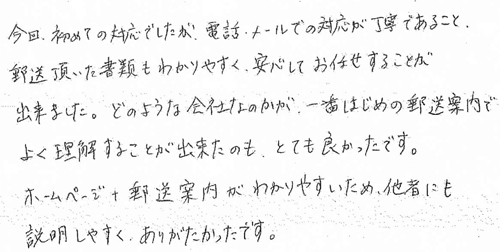 今回、初めての対応でしたが、電話、メールでの対応が丁寧であること、
郵送頂いた書類もわかりやすく、安心してお任せすることが
出来ました。どのような会社なのかが、一番はじめの郵送案内で
よく理解することが出来たのも、とても良かったです。
ホームページ+郵送案内がわかりやすいため、他者にも
説明しやすく、ありがたかったです。